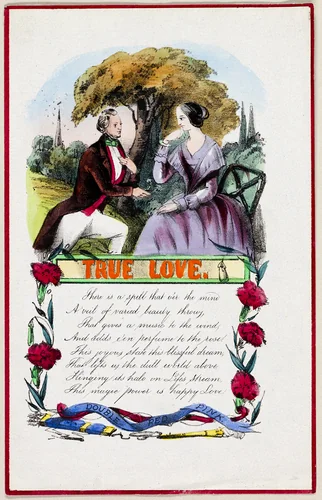 TRUE LOVE.
There is a spell that o'er the mind
A veil of varied beauty throws,
That gives a music to the wind,
And adds e'en perfume to the rose
This joyous state this blissful dream,
That lifts us the dull world above
Flinging its halo on Life's stream,
This magic power is happy Love.
DOUBLE RED PINK